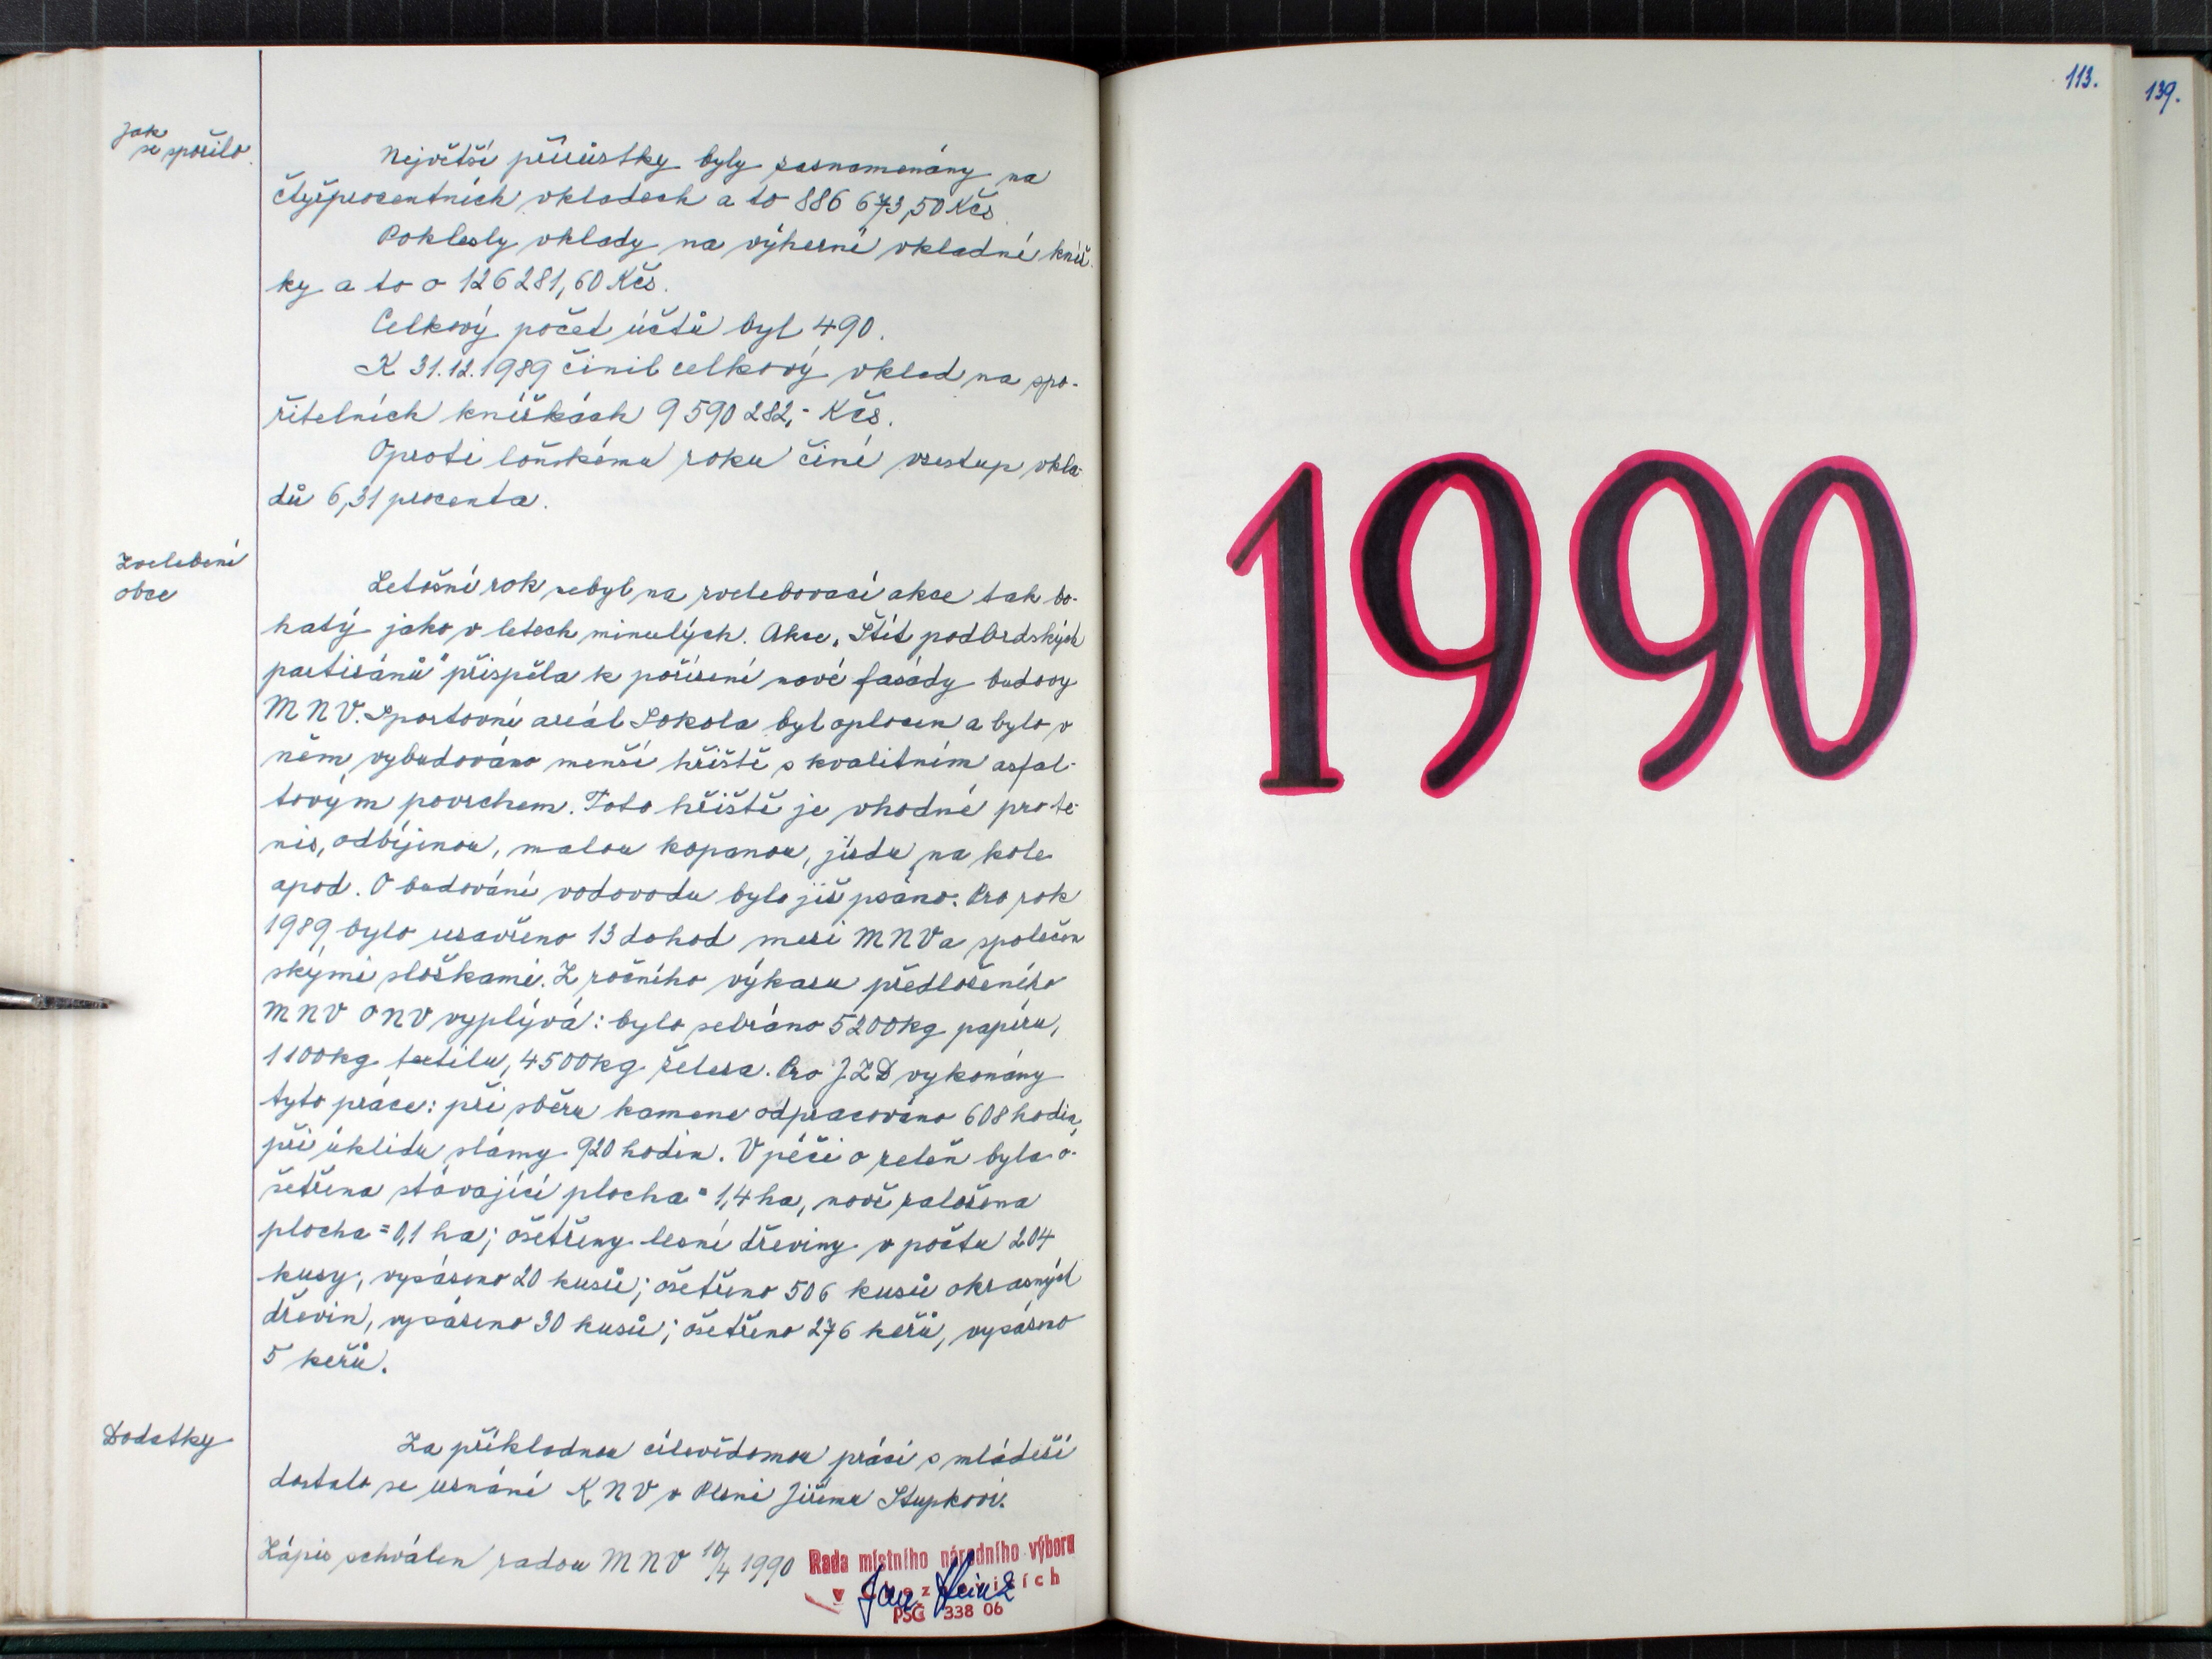 Jak
se spořilo.
Největší přírůstky byly zaznamenány na
čtyřprocentních vkladech a to 886 673,50 Kčs.
Poklesly vklady na výherní vkladní kníž-
ky a to o 126 281,60 Kčs.
Celkový počet účtů byl 490.
K 31.12.1989 činil celkový vklad na spo-
řitelních knížkách 9 590 282,- Kčs.
Oproti loňskému roku činí vzestup vkla-
dů 6,31 procenta.
Zvelebení
obce
Letošní rok nebyl na zvelebovací akce tak bo-
hatý jako v letech minulých. Akce „Štít podbrdských
partizánů" přispěla k pořízení nové fasády budovy
MNV. Sportovní areál Sokola byl oplocen a bylo v
něm vybudováno menší hřiště s kvalitním asfal-
tovým povrchem. Toto hřiště je vhodné pro te-
nis, odbíjenou, malou kopanou, jízdu na kole
apod. O budování vodovodu bylo již psáno. Pro rok
1989 bylo uzavřeno 13 dohod mezi MNV a společen
skými složkami. Z ročního výkazu předloženého
MNV ONV vyplývá: bylo sebráno 5200kg papíru,
1100kg textilu, 4500kg železa. Pro JZD vykonány
tyto práce: při sběru kamene odpracováno 608 hodin,
při úklidu slámy 920 hodin. V péči o zeleň byla o-
šetřena stávající plocha = 1,4 ha, nově založena
plocha = 0,1 ha; ošetřeny lesní dřeviny v počtu 204
kusy, vysázeno 20 kusů; ošetřeno 506 kusů okrasných
dřevin, vysázeno 30 kusů; ošetřeno 276 keřů, vysázeno
5 keřů.
Dodatky
Za příkladnou cílevědomou práci s mládeží
dostalo se uznání KNV v Plzni Jiřímu Stupkovi.
Zápis schválen radou MNV 10/4 1990
Rada místního národního výboru
v
PSČ 338 06
113.
139.
1990